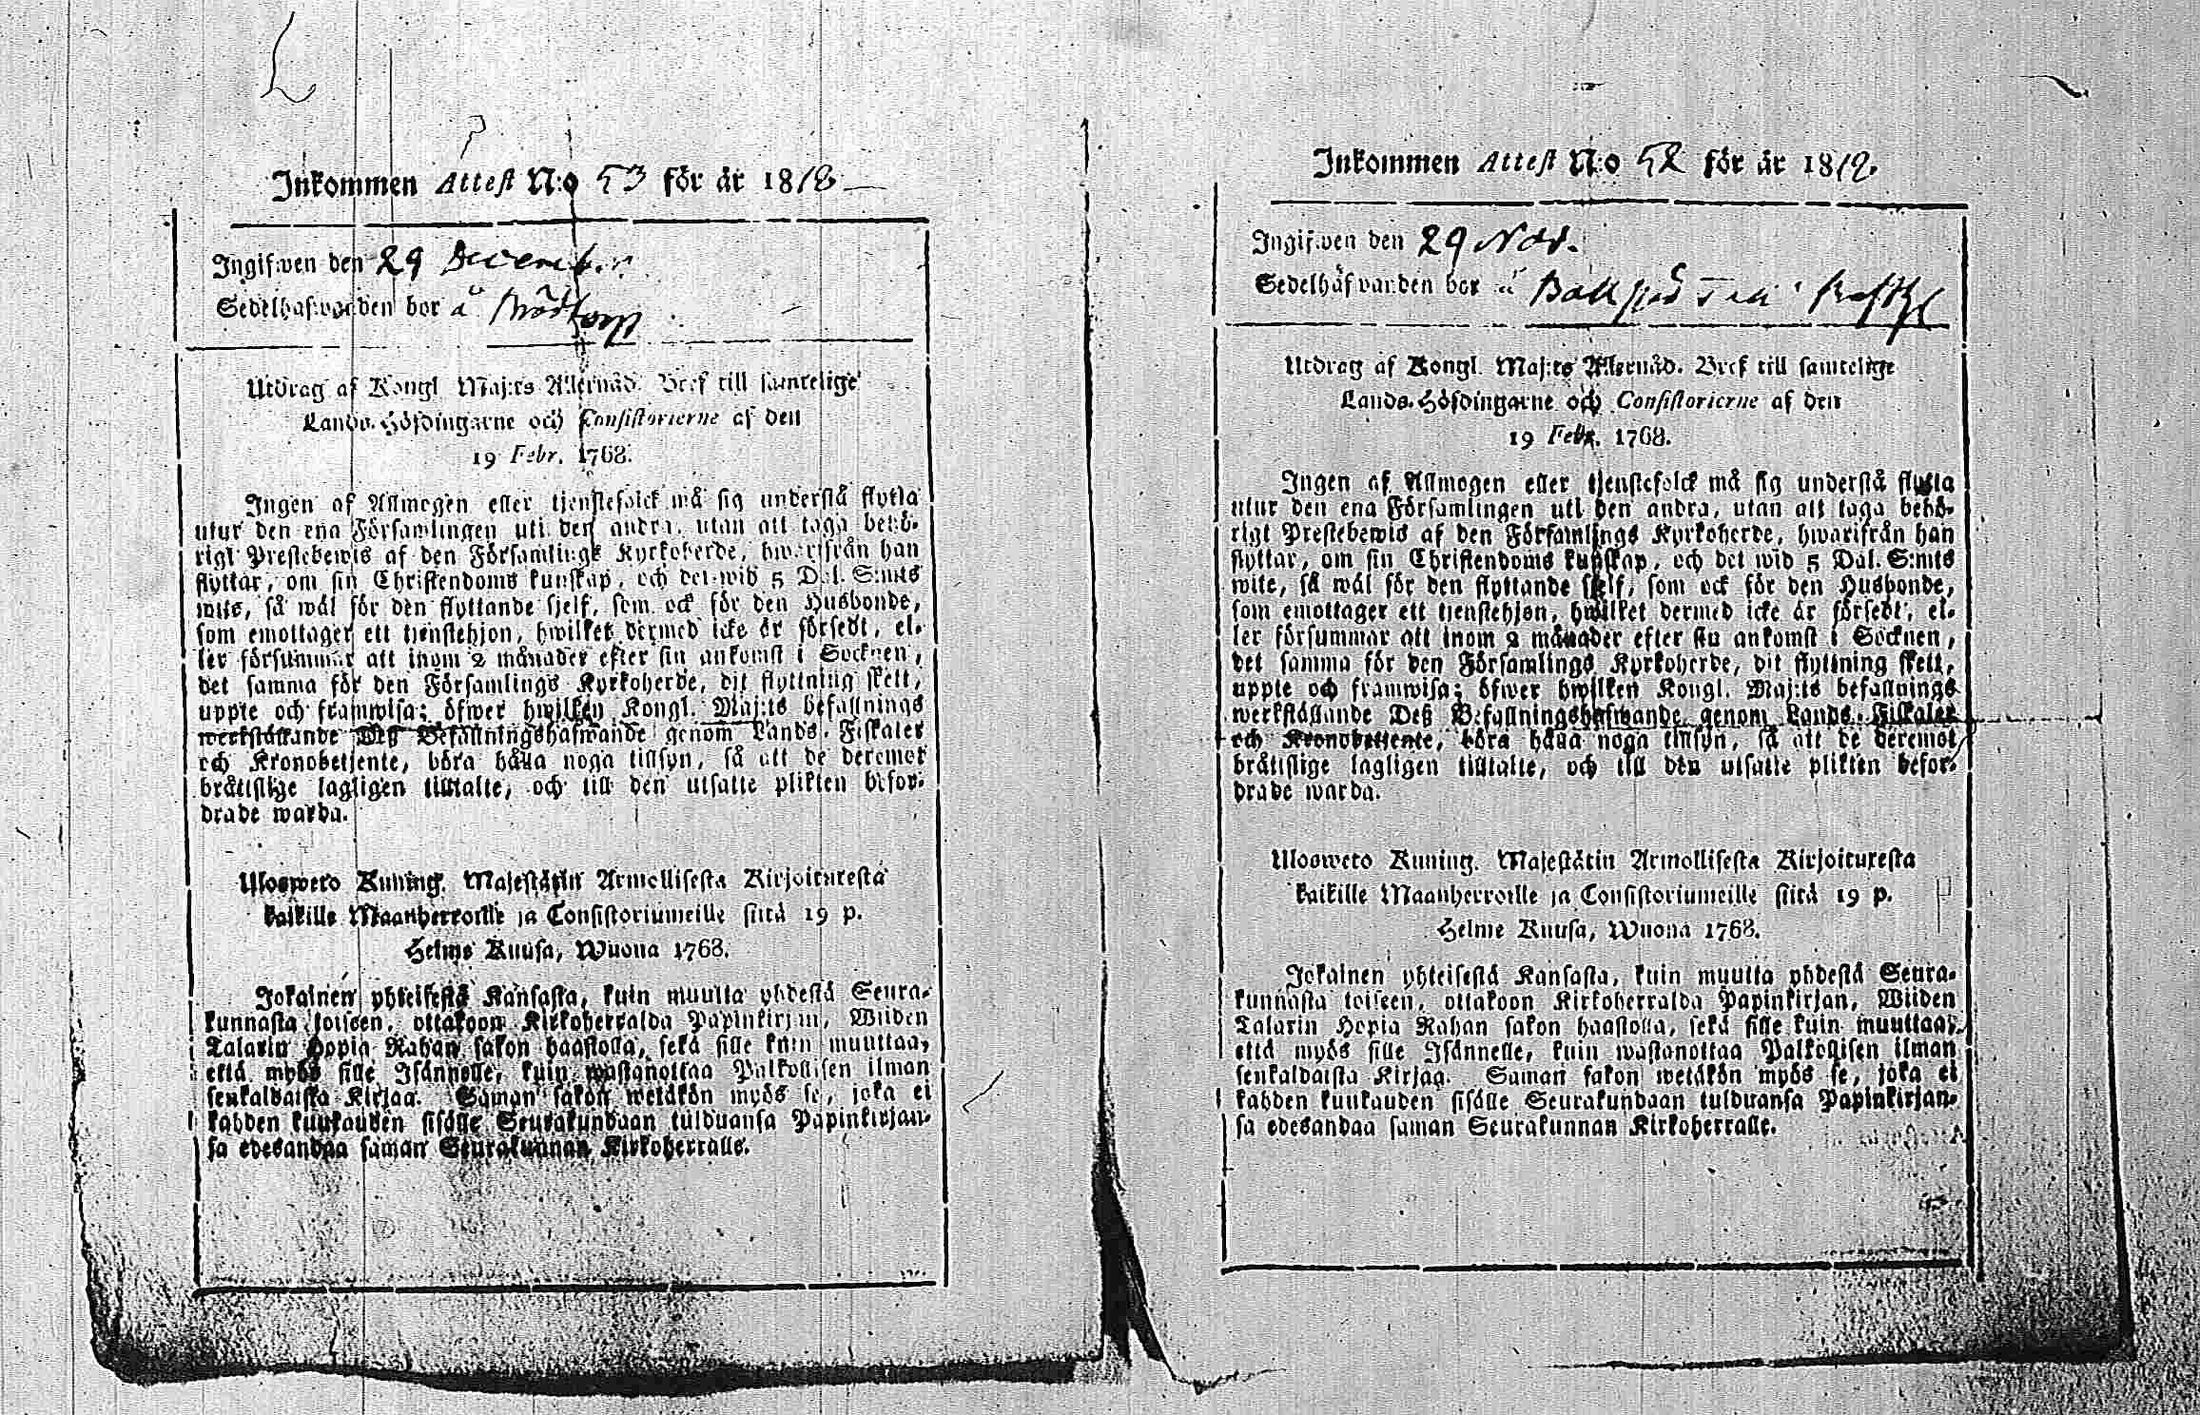 Inkommen Attest N:o 53 för år 1818
Ingifwen den 29 December
Sedelhafwanden bor å
Utdrag af Kongl Maj:ts Allernåd. Bref till samtelige
Lands-Höfdingarne och Consistorierne af den
19 Febr. 1768.
Ingen af Allmogen eller tjenstefolck må sig understå flytta
utur den ena Församlingen uti den andra, utan att taga behö-
rigt Prestebewis af den Församlings Kyrkoherde, hwarifrån han
flyttar, om sin Christendoms kunskap, och det wid 5 Dal. S:mts
wite, så wäl för den flyttande sjelf, som ock för den Husbonde,
som emottager ett tjenstehjon, hwilket dermed icke är försedt, el-
ler försummar att inom 2 månader efter sin ankomst i Socknen,
det samma för den Församlings Kyrkoherde, dit flyttning skett,
uppte och framwisa; öfwer hwilken Kongl. Maj:ts befallnings
werkställande Deß Befallningshafwande genom Lands-Fiskaler
och Kronobetjente, böra hålla noga tillsyn, så att de deremot
bråttslige lagligen tilltalte, och till den utsatte plikten befor-
drade warda.
Ulosweto Kuning. Majestätin Armollisesta Kirjoituxesta
kaikille Maanherroille ja Consistoriumeille siitä 19 p.
Helme Kuusa, Wuona 1768.
Jokainen yhteisestä Kansasta, kuin muutta yhdestä Seura-
kunnasta toiseen, ottakoon Kirkoherralda Papinkirjan, Wiiden
Talarin Hopia Rahan sakon haastolla, sekä sille kuin muuttaa,
että myös sille Isännelle, kuin wastanottaa Palkollisen ilman
senkaldaista Kirjaa. Saman sakon wetäkön myös se, joka ei
kahden kuukauden sisälle Seurakundaan tulduansa Papinkirjan-
sa edesandaa saman Seurakunnan Kirkoherralle.
Inkommen Attest N:o 52 för år 1818.
Ingifwen den 29 Nov.
Sedelhafwanden bor å
Utdrag af Kongl. Maj:ts Allernåd. Bref till samtelige
Lands-Höfdingarne och Consistorierne af den
19 Febr. 1768.
Ingen af Allmogen eller tjenstefolck må sig understå flytta
utur den ena Församlingen uti den andra, utan att taga behö-
rigt Prestebewis af den Församlings Kyrkoherde, hwarifrån han
flyttar, om sin Christendoms kunskap, och det wid 5 Dal. S:mts
wite, så wäl för den flyttande sjelf, som ock för den Husbonde,
som emottager ett tjenstehjon, hwilket dermed icke är försedt, el-
ler försummar att inom 2 månader efter sin ankomst i Socknen,
det samma för den Församlings Kyrkoherde, dit flyttning skett,
uppte och framwisa; öfwer hwilken Kongl. Maj:ts befallnings
werkställande Deß Befallningshafwande genom Lands-Fiskaler
och Kronobetjente, böra hålla noga tillsyn, så att de deremot
bråttslige lagligen tilltalte, och till den utsatte plikten befor-
drade warda.
Ulosweto Kuning. Majestätin Armollisesta Kirjoituxesta
kaikille Maanherroille ja Consistoriumeille siitä 19 p.
Helme Kuusa, Wuona 1768.
Jokainen yhteisestä Kansasta, kuin muutta yhdestä Seura-
kunnasta toiseen, ottakoon Kirkoherralda Papinkirjan, Wiiden
Talarin Hopia Rahan sakon haastolla, sekä sille kuin muuttaa,
että myös sille Isännelle, kuin wastanottaa Palkollisen ilman
senkaldaista Kirjaa. Saman sakon wetäkön myös se, joka ei
kahden kuukauden sisälle Seurakundaan tulduansa Papinkirjan-
sa edesandaa saman Seurakunnan Kirkoherralle.